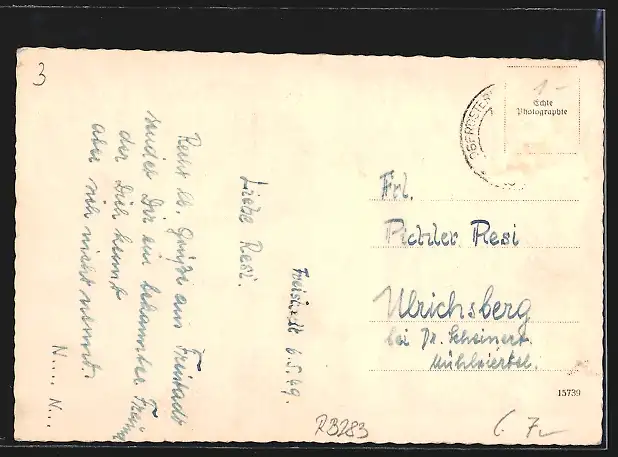 3
Freistadt 6.5.49.
Liebe Resi.
Recht lb. Grüße aus Freistadt
sendet Dir ein bekannter
der Dich kennt
aber sich nicht nennt.
N.... N...
OBERÖSTER
1-
Echte
Photographie
Frl.
Pichler Resi
Ulrichsberg
bei Dr. Scheinert.
Mühlviertel.
15739
RB283
7-